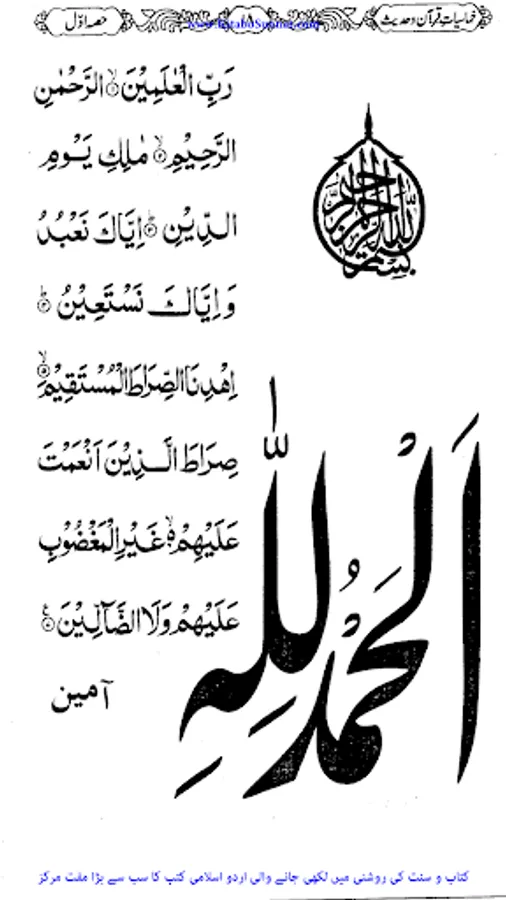 خطباتِ قرآن و حدیث
۱۸
حصہ اوّل
www.KitaboSunnat.com
بسم الله الرحمن الرحيم
اَلْحَمْدُ لِلّٰهِ
رَبِّ الْعٰلَمِيْنَ ۙ الرَّحْمٰنِ
الرَّحِيْمِ ۙ مٰلِكِ يَـوْمِ
الـدِّيْنِ ؕ اِيَّاكَ نَعْبُدُ
وَ اِيَّاكَ نَسْتَعِيْنُ ؕ
اِهْدِنَا الصِّرَاطَ الْمُسْتَقِيْمَ ۙ
صِرَاطَ الَّـذِيْنَ اَنْعَمْتَ
عَلَيْهِمْ ۙ غَيْرِ الْمَغْضُوْبِ
عَلَيْهِمْ وَلَا الضَّآلِّيْنَ ۧ
آمین
کتاب و سنت کی روشنی میں لکھی جانے والی اردو اسلامی کتب کا سب سے بڑا مفت مرکز